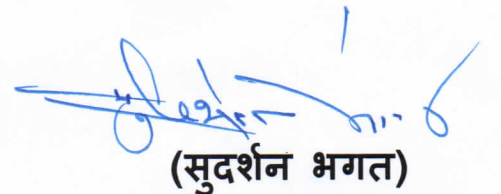 (सुदर्शन भगत)